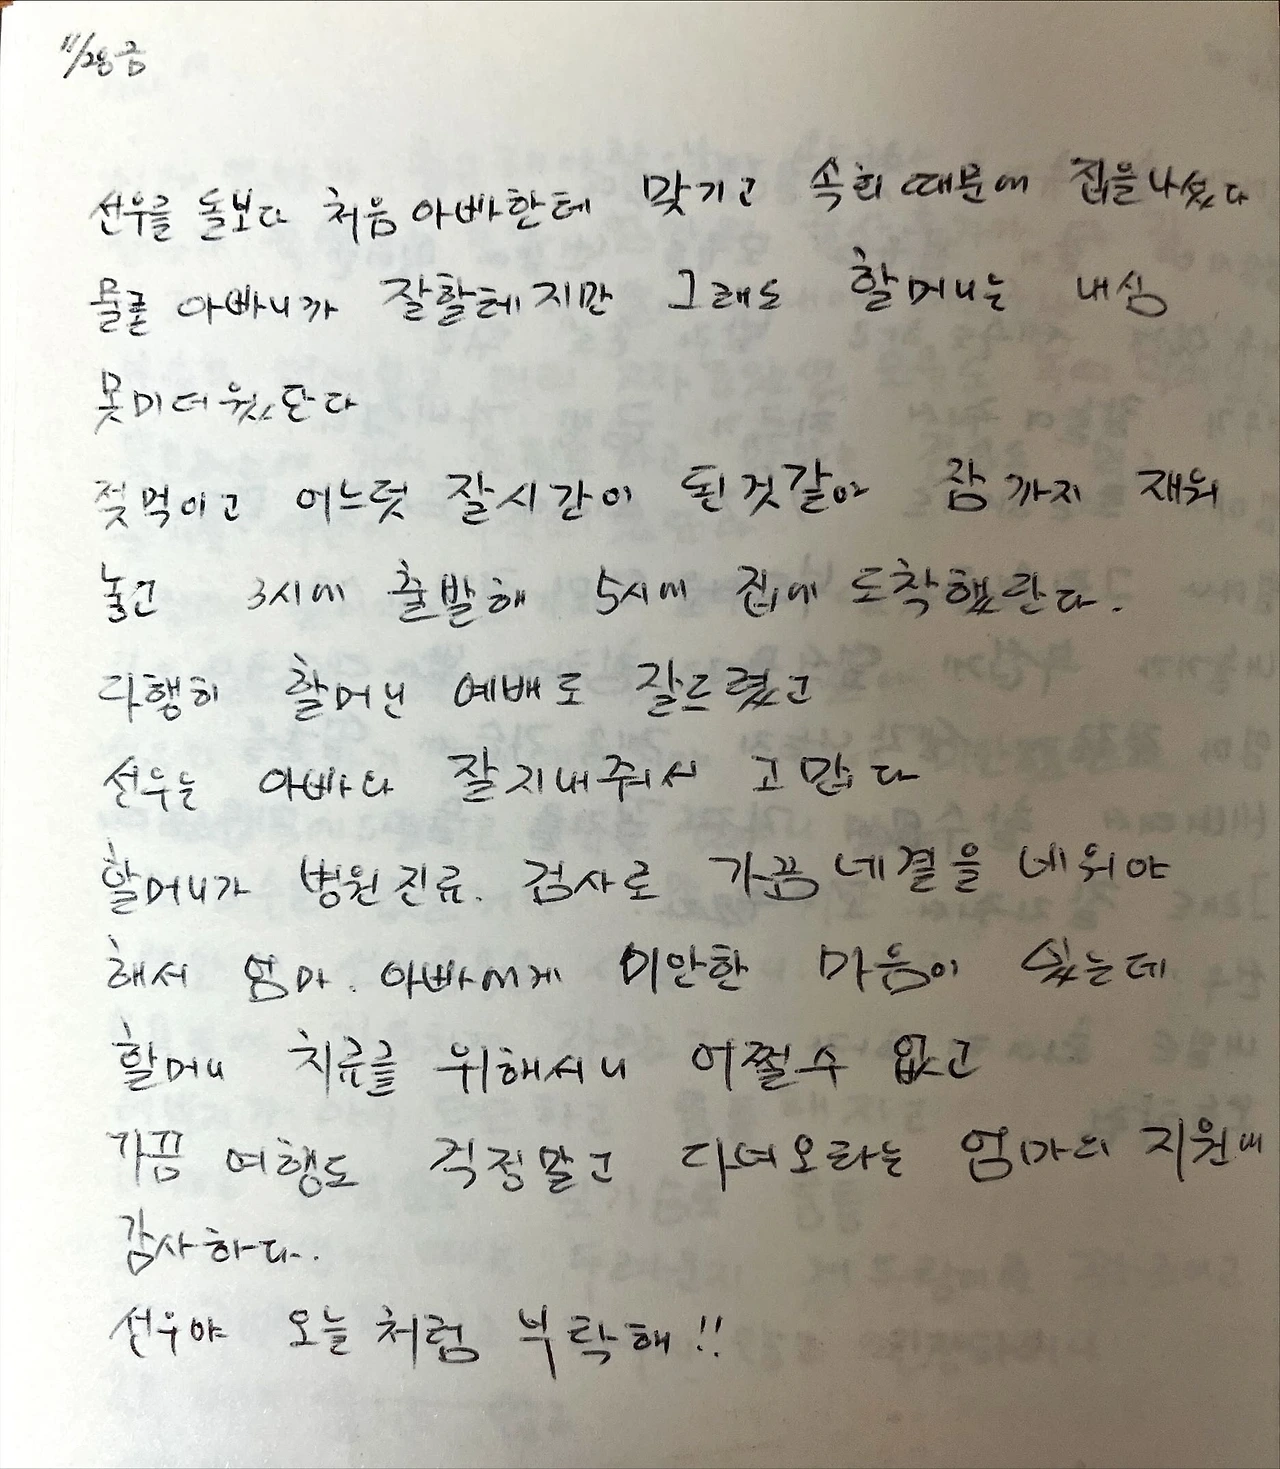 11/28 금
선우를 돌보다 처음 아빠한테 맞기고 속회 때문에 집을 나섰다
물론 아빠니까 잘할테지만 그래도 할머니는 내심
못미더웠단다
젖먹이고 어느덧 잘시간이 된것같아 잠까지 재워
놓고 3시에 출발해 5시에 집에 도착했단다.
다행히 할머닌 예배도 잘드렸고
선우는 아빠다 잘지내줘서 고맙다
할머니가 병원진료. 검사로 가끔 네곁을 비워야
해서 엄마. 아빠에게 미안한 마음이 싶는데
할머니 치료를 위해서니 어쩔수 없고
가끔 여행도 걱정말고 다녀오라는 엄마의 지원에
감사하다.
선우야 오늘처럼 부탁해!!